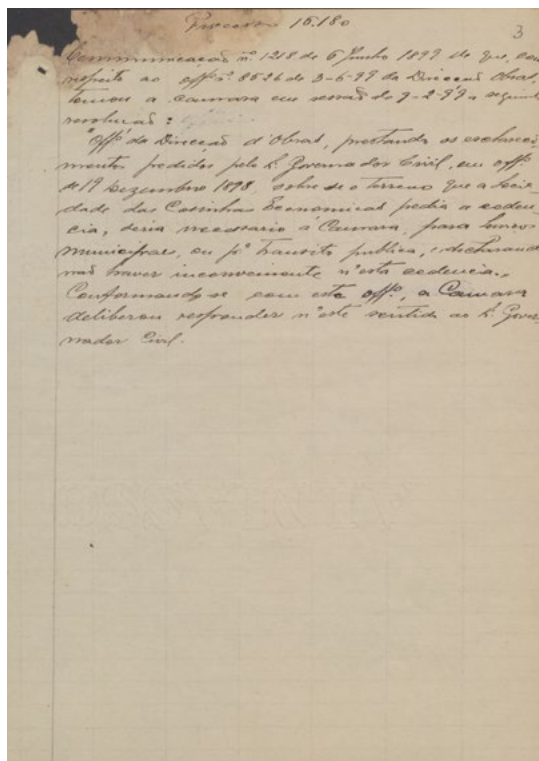 Processo 16.180
3
Communicação nº 1218 de 6 Junho 1899 de que, com
respeito ao offº nº 8526 de 3-6-99 da Direcção Obras,
tomou a camara em sessão de 9-2-99 a seguinte
resolução:
"Offº da Direcção d'Obras, prestando os esclareci-
mentos pedidos pelo Sr. Governador Civil, em offº
de 19 Dezembro 1898, sobre se o terreno que a Socie-
dade das Cosinhas Economicas pedia a ceden-
cia, seria necessario á Camara, para
municipaes, ou pª transito publico, e declarando
não haver inconveniente n'esta cedencia.
Conformando-se com este offº, a Camara
deliberou responder n'este sentido ao Sr. Gover-
nador Civil.